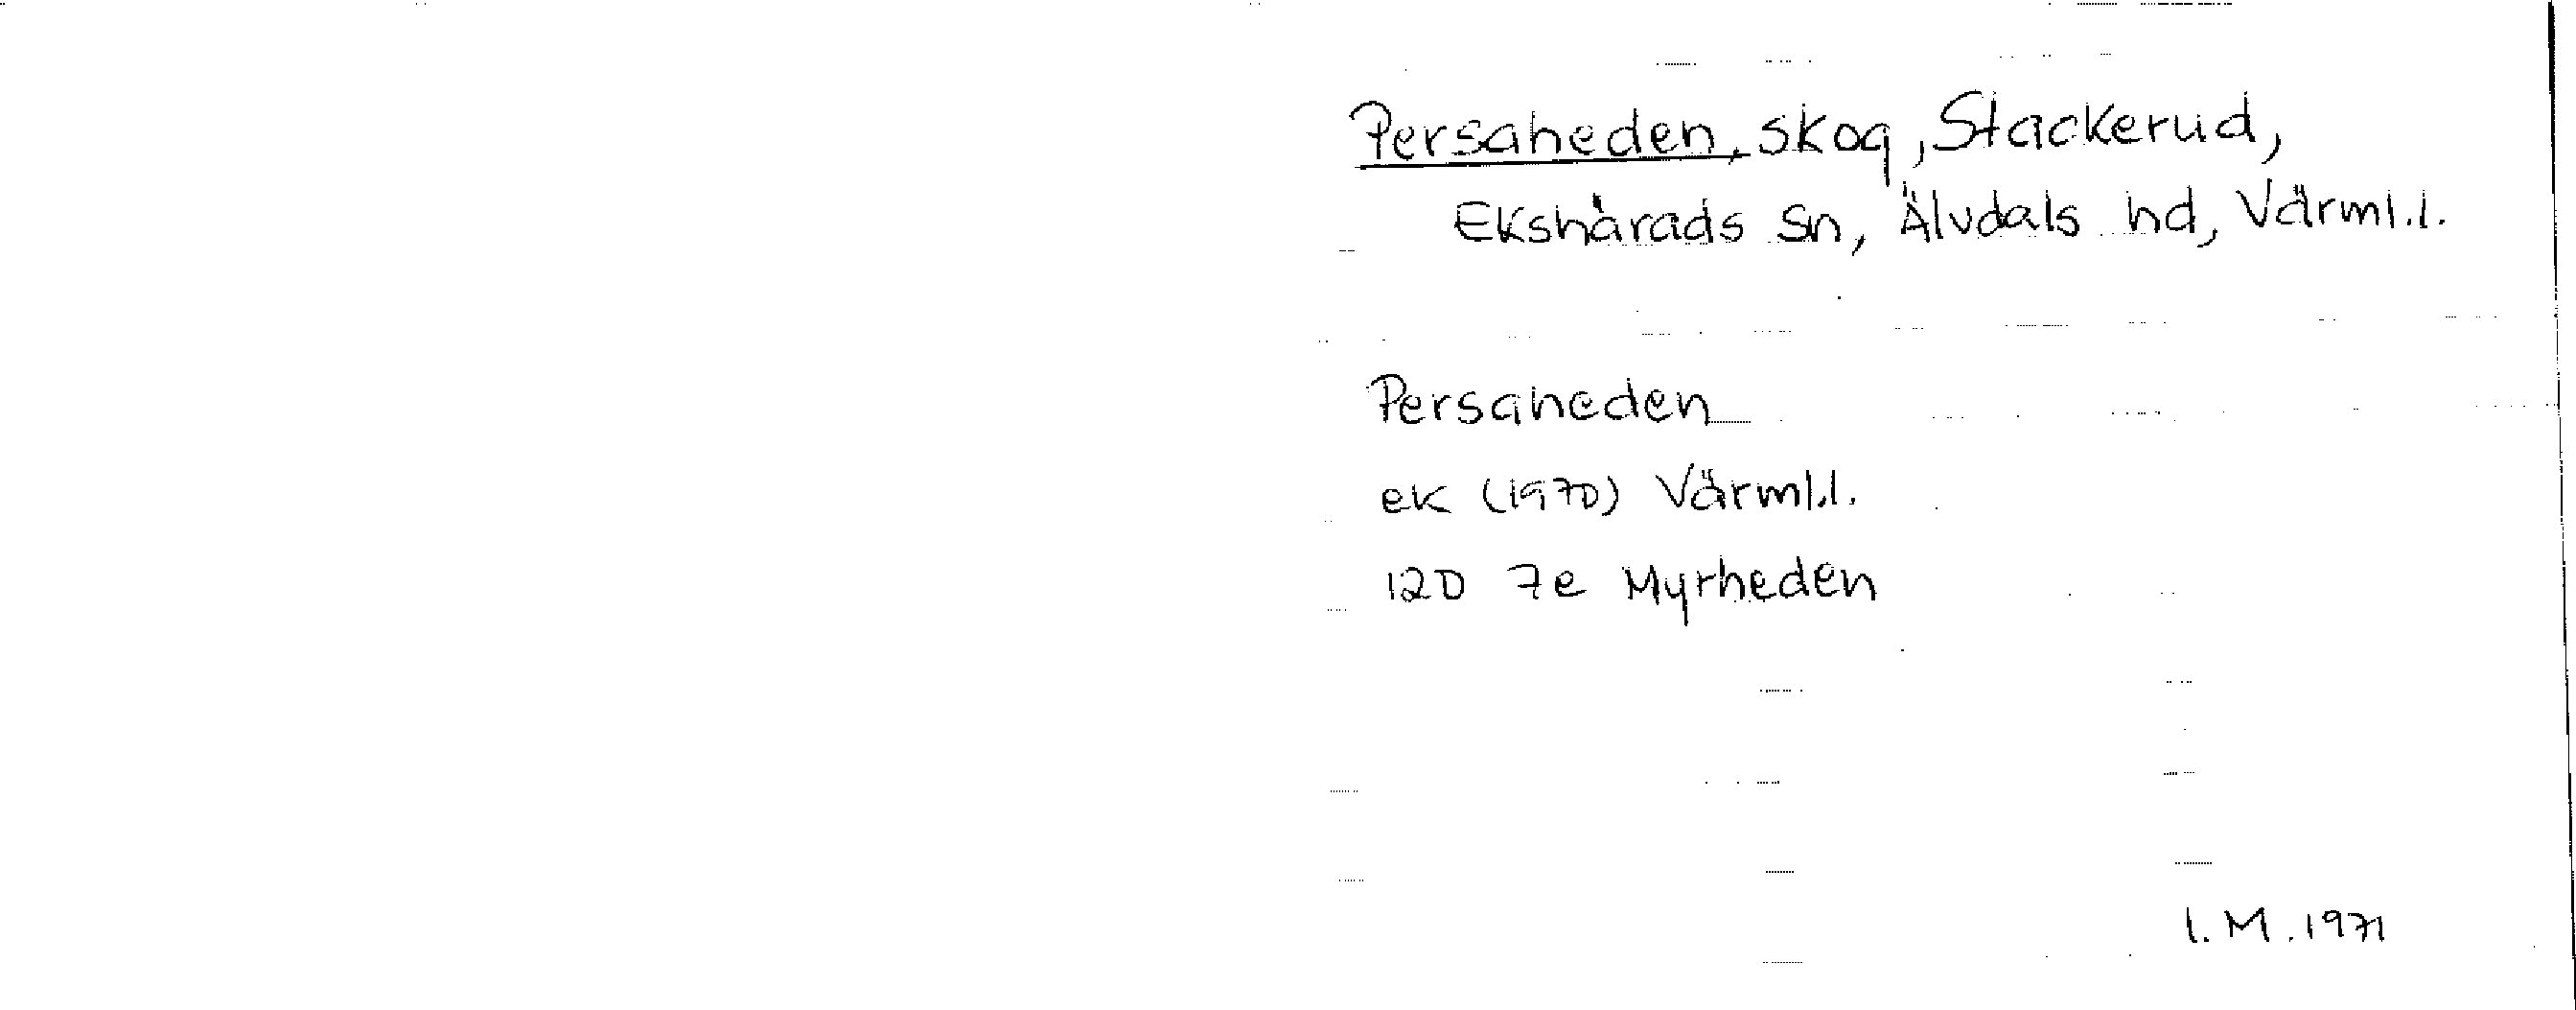 Persaheden, skog, Stackerud,
Ekshärads Sn, Älvdals hd, Värml.l.
Persaheden
ek (1970) Värml.l.
12D 7e Myrheden
I.M. 1971